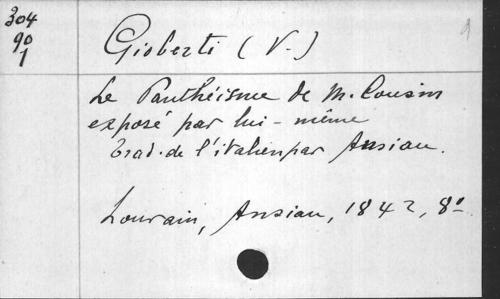 304
90
1
Gioberti (V.)
Le Panthéisme de M. Cousin
exposé par lui-même
Trad. de l'italien par Ansiau.
Louvain, Ansiau, 1842, 8º